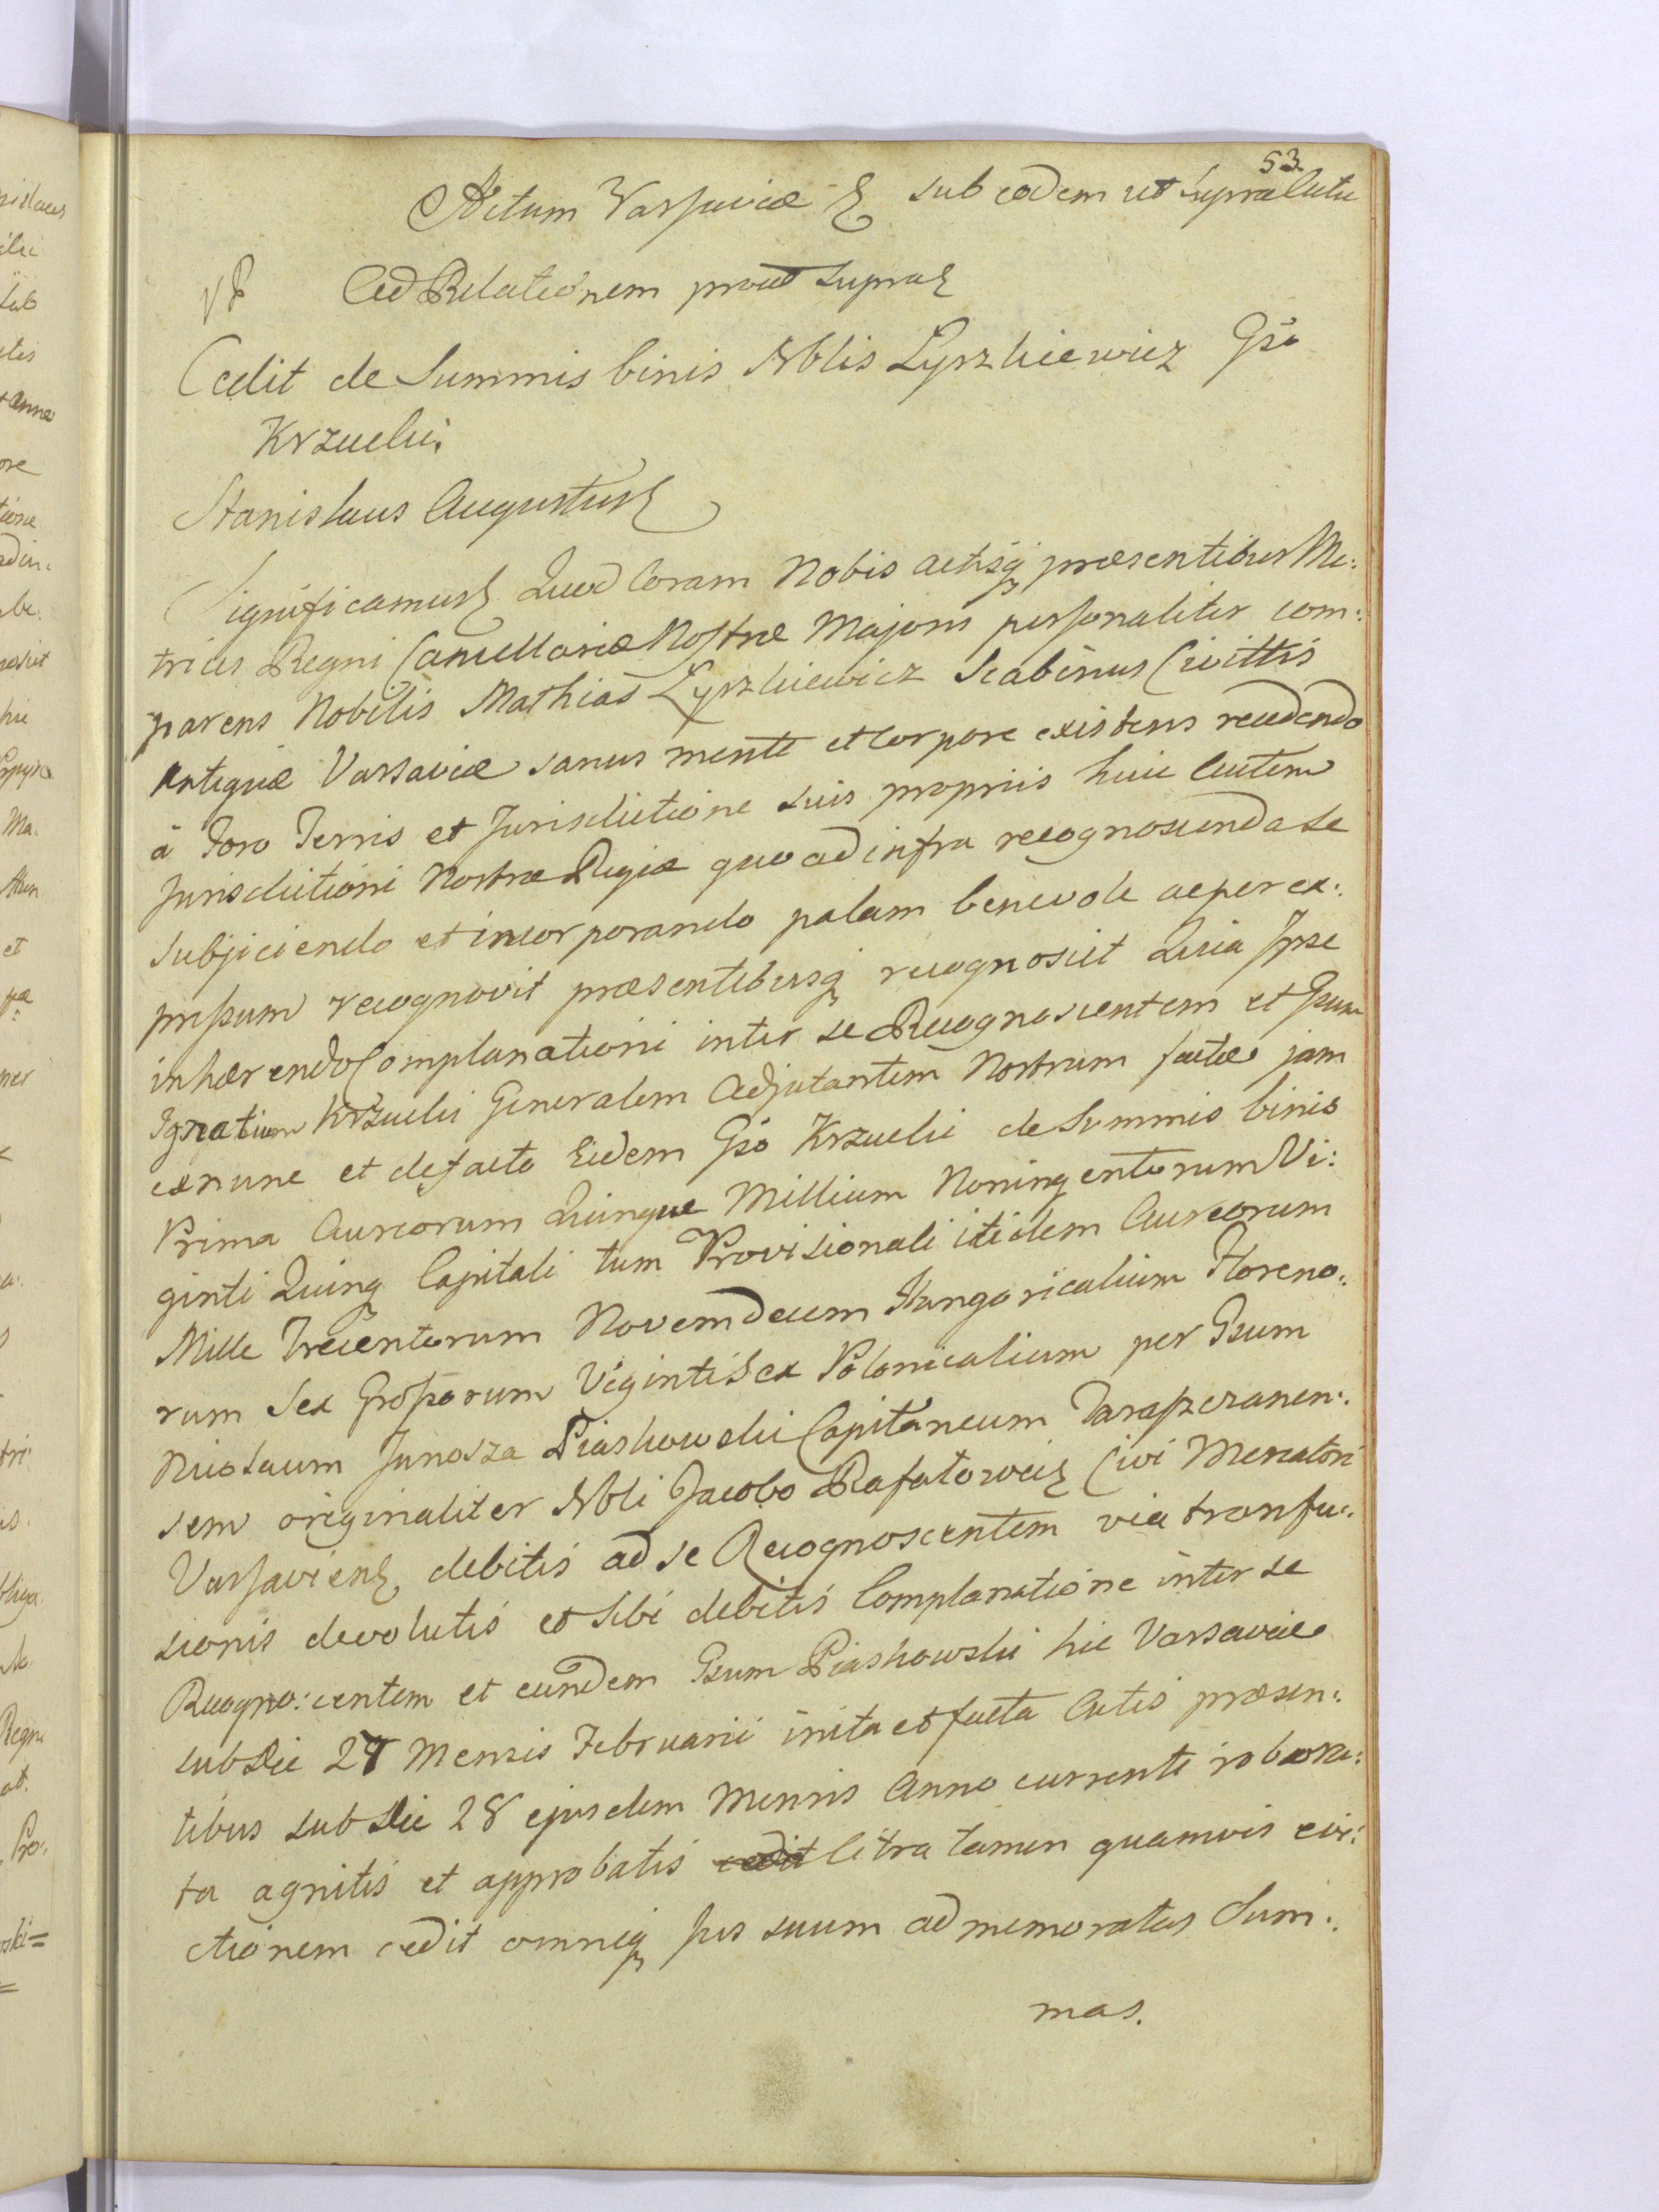 53.
Actum Varsaviæ & sub eodem ut supra actu
Ad Relationem prout supra &
Cedit de Summis binis Nblis Łyszkiewicz Gso
Krzucki.
Stanislaus Augustus &
Significamus & Quod Coram Nobis actisq præsentibus Me:
trices Regni Cancellariæ Nostræ Majoris personaliter com:
parens Nobilis Mathias Łyszkiewicz Scabinus Civittis
Antiquæ Varsaviæ sanus mente et Corpore existens recedendo
à Foro Terris et Jurisdictione suis propriis huic autem
Jurisdictioni Nostræ Regiæ quo ad infra recognoscenda se
subjiciendo et incorporando palam benevole ac per ex:
pressum recognovit præsentibusq recognoscit Quia Ipse
inhærendo Complanationi inter se Recognoscentem et Gsum
Ignatium Krzucki Generalem Adjutantem Nostrum factæ jam
ex nunc et de facto Eidem Gso Krzucki de Summis binis
Prima Aureorum Quinque Millium Noningentorum Vi:
ginti Quinq Capitali tum Provisionali itidem Aureorum
Mille Trecentorum Novemdecem Hungaricalium Floreno:
rum Sex Grossorum Viginti Sex Polonicalium per Gsum
Nicolaum Junosza Piaskowski Capitaneum Taraszczanen:
sem originaliter Nbli Jacobo Rafałowicz Civi Mercatori
Varsavien & debitis ad se Recognoscentem via transfu:
sionis devolutis et sibi debitis Complanatione inter se
Recogno:centem et eundem Gsum Piaskowski hic Varsaviæ
sub die 27 Mensis Februarii inita et facta Actis præsen:
tibus sub die 28 ejusdem Mensis Anno currente robora:
ta agnitis et approbatis cedit citra tamen quamvis evi:
ctionem cedit omneq Jus suum ad memoratas Sum:
mas.